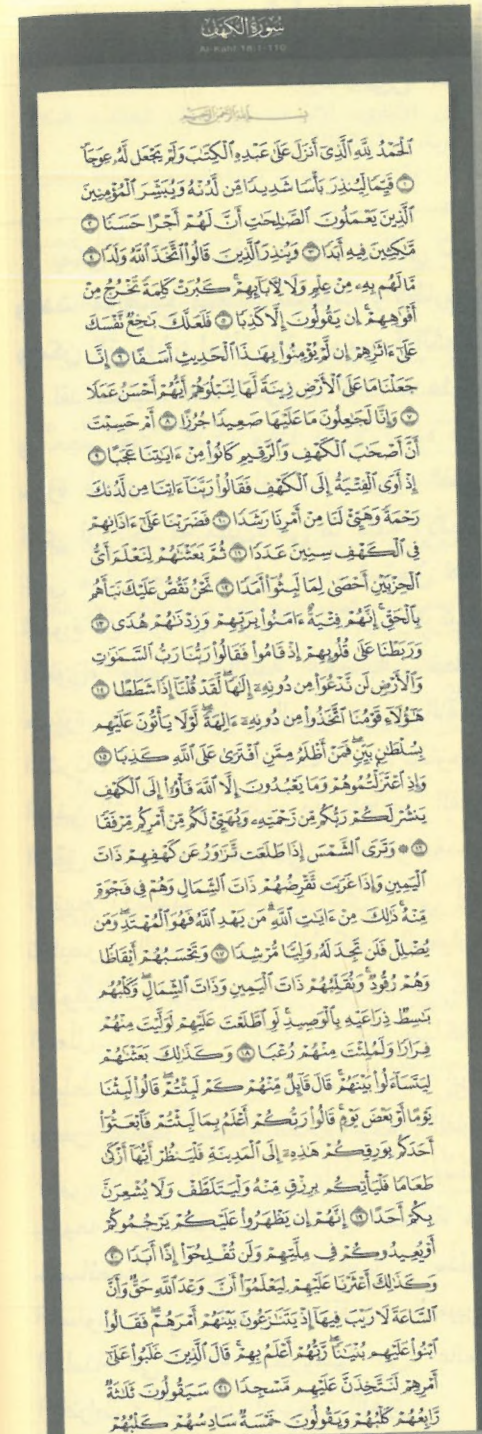 سُورَةُ الكَهْفِ
Al-Kahf 18:1-110
بِسْمِ اللَّهِ الرَّحْمَٰنِ الرَّحِيمِ
ٱلْحَمْدُ لِلَّهِ ٱلَّذِىٓ أَنزَلَ عَلَىٰ عَبْدِهِ ٱلْكِتَٰبَ وَلَمْ يَجْعَل لَّهُۥ عِوَجَاۜ
١ قَيِّمًا لِّيُنذِرَ بَأْسًا شَدِيدًا مِّن لَّدُنْهُ وَيُبَشِّرَ ٱلْمُؤْمِنِينَ
ٱلَّذِينَ يَعْمَلُونَ ٱلصَّٰلِحَٰتِ أَنَّ لَهُمْ أَجْرًا حَسَنًا ٢
مَّٰكِثِينَ فِيهِ أَبَدًا ٣ وَيُنذِرَ ٱلَّذِينَ قَالُوا۟ ٱتَّخَذَ ٱللَّهُ وَلَدًا ٤
مَّا لَهُم بِهِۦ مِنْ عِلْمٍ وَلَا لِـَٔابَآئِهِمْ ۚ كَبُرَتْ كَلِمَةً تَخْرُجُ مِنْ
أَفْوَٰهِهِمْ ۚ إِن يَقُولُونَ إِلَّا كَذِبًا ٥ فَلَعَلَّكَ بَٰخِعٌ نَّفْسَكَ
عَلَىٰٓ ءَاثَٰرِهِمْ إِن لَّمْ يُؤْمِنُوا۟ بِهَٰذَا ٱلْحَدِيثِ أَسَفًا ٦ إِنَّا
جَعَلْنَا مَا عَلَى ٱلْأَرْضِ زِينَةً لَّهَا لِنَبْلُوَهُمْ أَيُّهُمْ أَحْسَنُ عَمَلًا
٧ وَإِنَّا لَجَٰعِلُونَ مَا عَلَيْهَا صَعِيدًا جُرُزًا ٨ أَمْ حَسِبْتَ
أَنَّ أَصْحَٰبَ ٱلْكَهْفِ وَٱلرَّقِيمِ كَانُوا۟ مِنْ ءَايَٰتِنَا عَجَبًا ٩
إِذْ أَوَى ٱلْفِتْيَةُ إِلَى ٱلْكَهْفِ فَقَالُوا۟ رَبَّنَآ ءَاتِنَا مِن لَّدُنكَ
رَحْمَةً وَهَيِّئْ لَنَا مِنْ أَمْرِنَا رَشَدًا ١٠ فَضَرَبْنَا عَلَىٰٓ ءَاذَانِهِمْ
فِى ٱلْكَهْفِ سِنِينَ عَدَدًا ١١ ثُمَّ بَعَثْنَٰهُمْ لِنَعْلَمَ أَىُّ
ٱلْحِزْبَيْنِ أَحْصَىٰ لِمَا لَبِثُوٓا۟ أَمَدًا ١٢ نَّحْنُ نَقُصُّ عَلَيْكَ نَبَأَهُم
بِٱلْحَقِّ ۚ إِنَّهُمْ فِتْيَةٌ ءَامَنُوا۟ بِرَبِّهِمْ وَزِدْنَٰهُمْ هُدًى ١٣
وَرَبَطْنَا عَلَىٰ قُلُوبِهِمْ إِذْ قَامُوا۟ فَقَالُوا۟ رَبُّنَا رَبُّ ٱلسَّمَٰوَٰتِ
وَٱلْأَرْضِ لَن نَّدْعُوَا۟ مِن دُونِهِۦٓ إِلَٰهًا ۖ لَّقَدْ قُلْنَآ إِذًا شَطَطًا ١٤
هَٰٓؤُلَآءِ قَوْمُنَا ٱتَّخَذُوا۟ مِن دُونِهِۦٓ ءَالِهَةً ۖ لَّوْلَا يَأْتُونَ عَلَيْهِم
بِسُلْطَٰنٍۭ بَيِّنٍ ۖ فَمَنْ أَظْلَمُ مِمَّنِ ٱفْتَرَىٰ عَلَى ٱللَّهِ كَذِبًا ١٥
وَإِذِ ٱعْتَزَلْتُمُوهُمْ وَمَا يَعْبُدُونَ إِلَّا ٱللَّهَ فَأْوُۥٓا۟ إِلَى ٱلْكَهْفِ
يَنشُرْ لَكُمْ رَبُّكُم مِّن رَّحْمَتِهِۦ وَيُهَيِّئْ لَكُم مِّنْ أَمْرِكُم مِّرْفَقًا
١٦ ۞ وَتَرَى ٱلشَّمْسَ إِذَا طَلَعَت تَّزَٰوَرُ عَن كَهْفِهِمْ ذَاتَ
ٱلْيَمِينِ وَإِذَا غَرَبَت تَّقْرِضُهُمْ ذَاتَ ٱلشِّمَالِ وَهُمْ فِى فَجْوَةٍ
مِّنْهُ ۚ ذَٰلِكَ مِنْ ءَايَٰتِ ٱللَّهِ ۗ مَن يَهْدِ ٱللَّهُ فَهُوَ ٱلْمُهْتَدِ ۖ وَمَن
يُضْلِلْ فَلَن تَجِدَ لَهُۥ وَلِيًّا مُّرْشِدًا ١٧ وَتَحْسَبُهُمْ أَيْقَاظًا
وَهُمْ رُقُودٌ ۚ وَنُقَلِّبُهُمْ ذَاتَ ٱلْيَمِينِ وَذَاتَ ٱلشِّمَالِ ۖ وَكَلْبُهُم
بَٰسِطٌ ذِرَاعَيْهِ بِٱلْوَصِيدِ ۚ لَوِ ٱطَّلَعْتَ عَلَيْهِمْ لَوَلَّيْتَ مِنْهُمْ
فِرَارًا وَلَمُلِئْتَ مِنْهُمْ رُعْبًا ١٨ وَكَذَٰلِكَ بَعَثْنَٰهُمْ
لِيَتَسَآءَلُوا۟ بَيْنَهُمْ ۚ قَالَ قَآئِلٌ مِّنْهُمْ كَمْ لَبِثْتُمْ ۖ قَالُوا۟ لَبِثْنَا
يَوْمًا أَوْ بَعْضَ يَوْمٍ ۚ قَالُوا۟ رَبُّكُمْ أَعْلَمُ بِمَا لَبِثْتُمْ فَٱبْعَثُوٓا۟
أَحَدَكُم بِوَرِقِكُمْ هَٰذِهِۦٓ إِلَى ٱلْمَدِينَةِ فَلْيَنظُرْ أَيُّهَآ أَزْكَىٰ
طَعَامًا فَلْيَأْتِكُم بِرِزْقٍ مِّنْهُ وَلْيَتَلَطَّفْ وَلَا يُشْعِرَنَّ
بِكُمْ أَحَدًا ١٩ إِنَّهُمْ إِن يَظْهَرُوا۟ عَلَيْكُمْ يَرْجُمُوكُمْ
أَوْ يُعِيدُوكُمْ فِى مِلَّتِهِمْ وَلَن تُفْلِحُوٓا۟ إِذًا أَبَدًا ٢٠
وَكَذَٰلِكَ أَعْثَرْنَا عَلَيْهِمْ لِيَعْلَمُوٓا۟ أَنَّ وَعْدَ ٱللَّهِ حَقٌّ وَأَنَّ
ٱلسَّاعَةَ لَا رَيْبَ فِيهَآ إِذْ يَتَنَٰزَعُونَ بَيْنَهُمْ أَمْرَهُمْ ۖ فَقَالُوا۟
ٱبْنُوا۟ عَلَيْهِم بُنْيَٰنًا ۖ رَّبُّهُمْ أَعْلَمُ بِهِمْ ۚ قَالَ ٱلَّذِينَ غَلَبُوا۟ عَلَىٰٓ
أَمْرِهِمْ لَنَتَّخِذَنَّ عَلَيْهِم مَّسْجِدًا ٢١ سَيَقُولُونَ ثَلَٰثَةٌ
رَّابِعُهُمْ كَلْبُهُمْ وَيَقُولُونَ خَمْسَةٌ سَادِسُهُمْ كَلْبُهُمْ